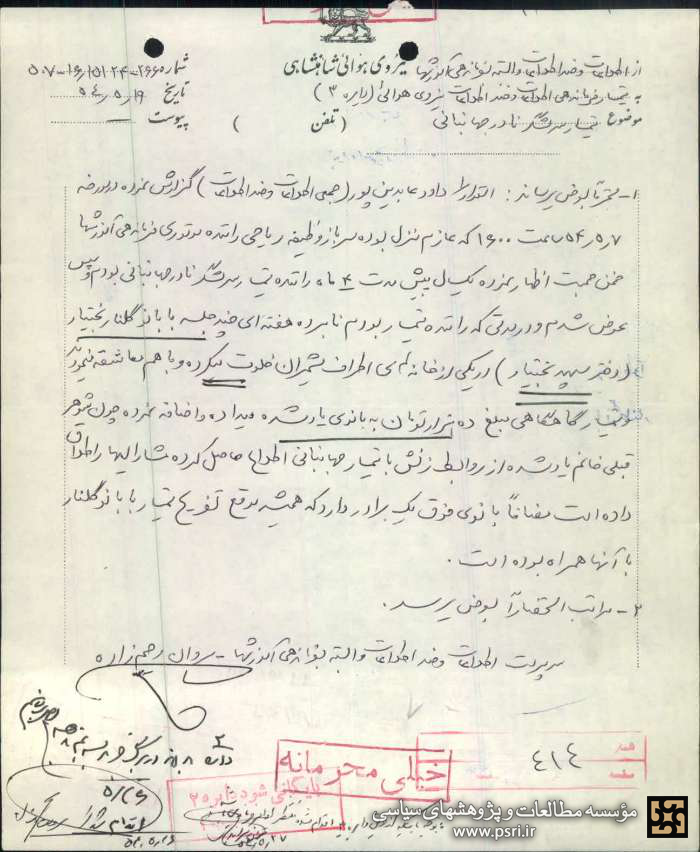 نیروی هوائی شاهنشاهی
از اطلاعات و ضد اطلاعات وابسته بفرماندهی آموزشها
شماره ۲۶۶-۲۴-۱۵۱/۱۶-۵۰۷
به تیمسار فرماندهی اطلاعات و ضد اطلاعات نیروی هوائی (دایره ۳)
تاریخ ۵۴/۵/۱۹
موضوع تیمسار سرلشگر نادر جهانبانی
( تلفن )
پیوست
۱- محترماً بعرض میرساند : ستوانیار داود عابدین پور (جمعی اطلاعات و ضد اطلاعات) گزارش نموده در روز
۵۴/۵/۷ ساعت ۱۶۰۰ که عازم منزل بوده سرباز وظیفه ریاحی راننده موتوری فرماندهی آموزشها
ضمن صحبت اظهار نموده یکسال پیش مدت ۴ ماه راننده تیمسار سرلشگر نادر جهانبانی بودم و سپس
عوض شدم و در مدتی که راننده تیمسار بودم نامبرده هفته ای چند جلسه با بانو گلنار بختیار
(دختر سپهبد بختیار) در یکی از خانه های اطراف شمیران خلوت میکرده و با هم معاشقه مینمودند
و تیمسار گاهگاهی مبلغ ده هزار تومان به بانوی یاد شده میداده و اضافه نموده چون شوهر
قبلی خانم یاد شده از روابط زنش با تیمسار جهانبانی اطلاع حاصل کرده مشارالیها را طلاق
داده است مضافاً بانوی فوق یک برادر دارد که همیشه موقع تفریح تیمسار با بانو گلنار
با آنها همراه بوده است .
۲- مراتب استحضاراً بعرض میرسد .
سرپرست اطلاعات و ضد اطلاعات وابسته بفرماندهی آموزشها - سروان رحیم زاده
خیلی محرمانه
بایگانی شود دایره ۲
صفحه
۴۱۴
۵/۲۶
اقدام شد
۵۴/۵/۲۶
مؤسسه مطالعات و پژوهشهای سیاسی
www.psri.ir